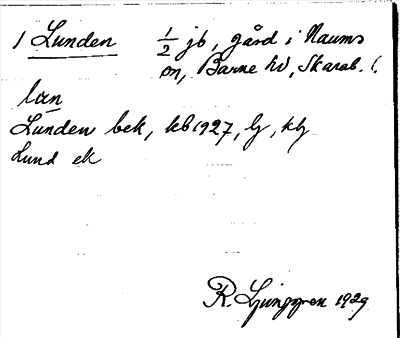 1 Lunden ½ jb, gård i Naums
sn, Barne hd, Skarab. l.
lan
Lunden bek, kb 1927, lj, klj
Lund ek
R. Ljunggren 1929